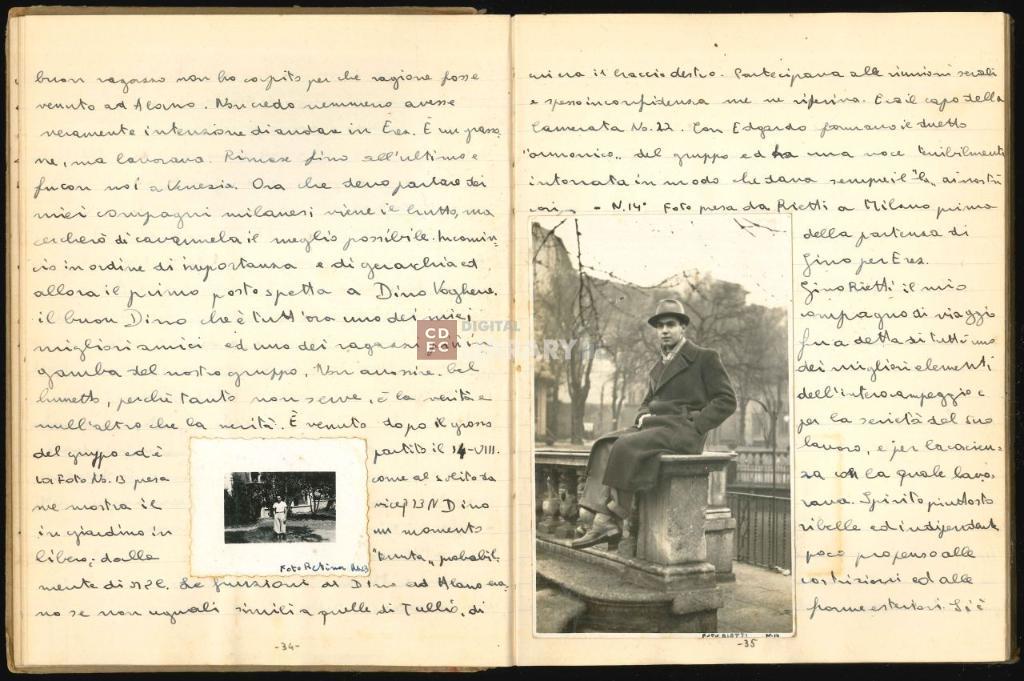 buon ragazzo non ho capito per che ragione fosse
venuto ad Alano. Non credo nemmeno avesse
veramente intenzione di andare in Erez. È un paszo
ne, ma lavorava. Rimase fino all'ultimo e
fu con noi a Venezia. Ora che devo parlare dei
miei compagni milanesi viene il brutto, ma
cercherò di cavarmela il meglio possibile. Incomin-
cio in ordine di importanza e di gerarchia ed
allora il primo posto spetta a Dino Voghera.
il buon Dino che è tutt'ora uno dei miei
migliori amici ed uno dei ragazzi più in
gamba del nostro gruppo. Non arrossire, bel
fumetto, perché tanto non serve, è la verità e
null'altro che la verità. È venuto dopo il grosso
del gruppo ed è partito il 14-VIII.
La Foto No. 13 presa come al solito da
me mostra il Dino
in giardino in un momento
libero; dalla "tenuta" probabil-
mente di . Le funzioni di Dino ad Alano era-
no se non uguali simili a quelle di Tullio, di
Foto Retina No.13
-34-
cui era il braccio destro. Partecipava alle riunioni serali
e spesso in confidenza me ne riferiva. Era il capo della
Camerata No. 22. Con Edgardo formavano il duetto
"armonico" del gruppo ed ha una voce terribilmente
intonata in modo che dava sempre il "la" ai nostri
cori. - N. 14° Foto presa da Rietti a Milano prima
della partenza di
Gino per Erez.
Gino Rietti il mio
compagno di viaggio
fu a detta di tutti uno
dei migliori elementi
dell'intero campeggio e
per la serietà del suo
lavoro, e per la coscien-
za con la quale lavo-
rava. Spirito piuttosto
ribelle ed indipendente
poco propenso alle
costrizioni ed alle
forme esteriori. Si è
FOTO RIETTI N.14
-35
CDEC DIGITAL LIBRARY